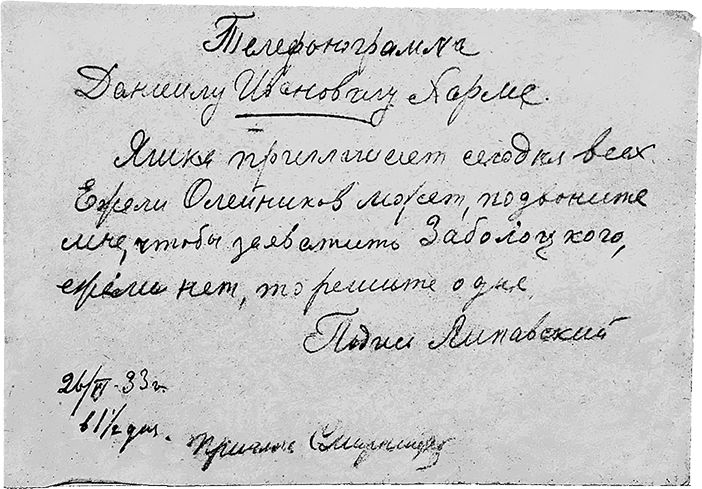 Телефонограмма
Даниилу Ивановичу Хармс.
Яшка приглашает сегодня всех.
Ежели Олейников может, подзвоните
мне, чтобы захватить Заболоцкого,
ежели нет, то решите о дне
Подпись Липавский
26/ 33 г.
в 1 1/2 дня.
приняла